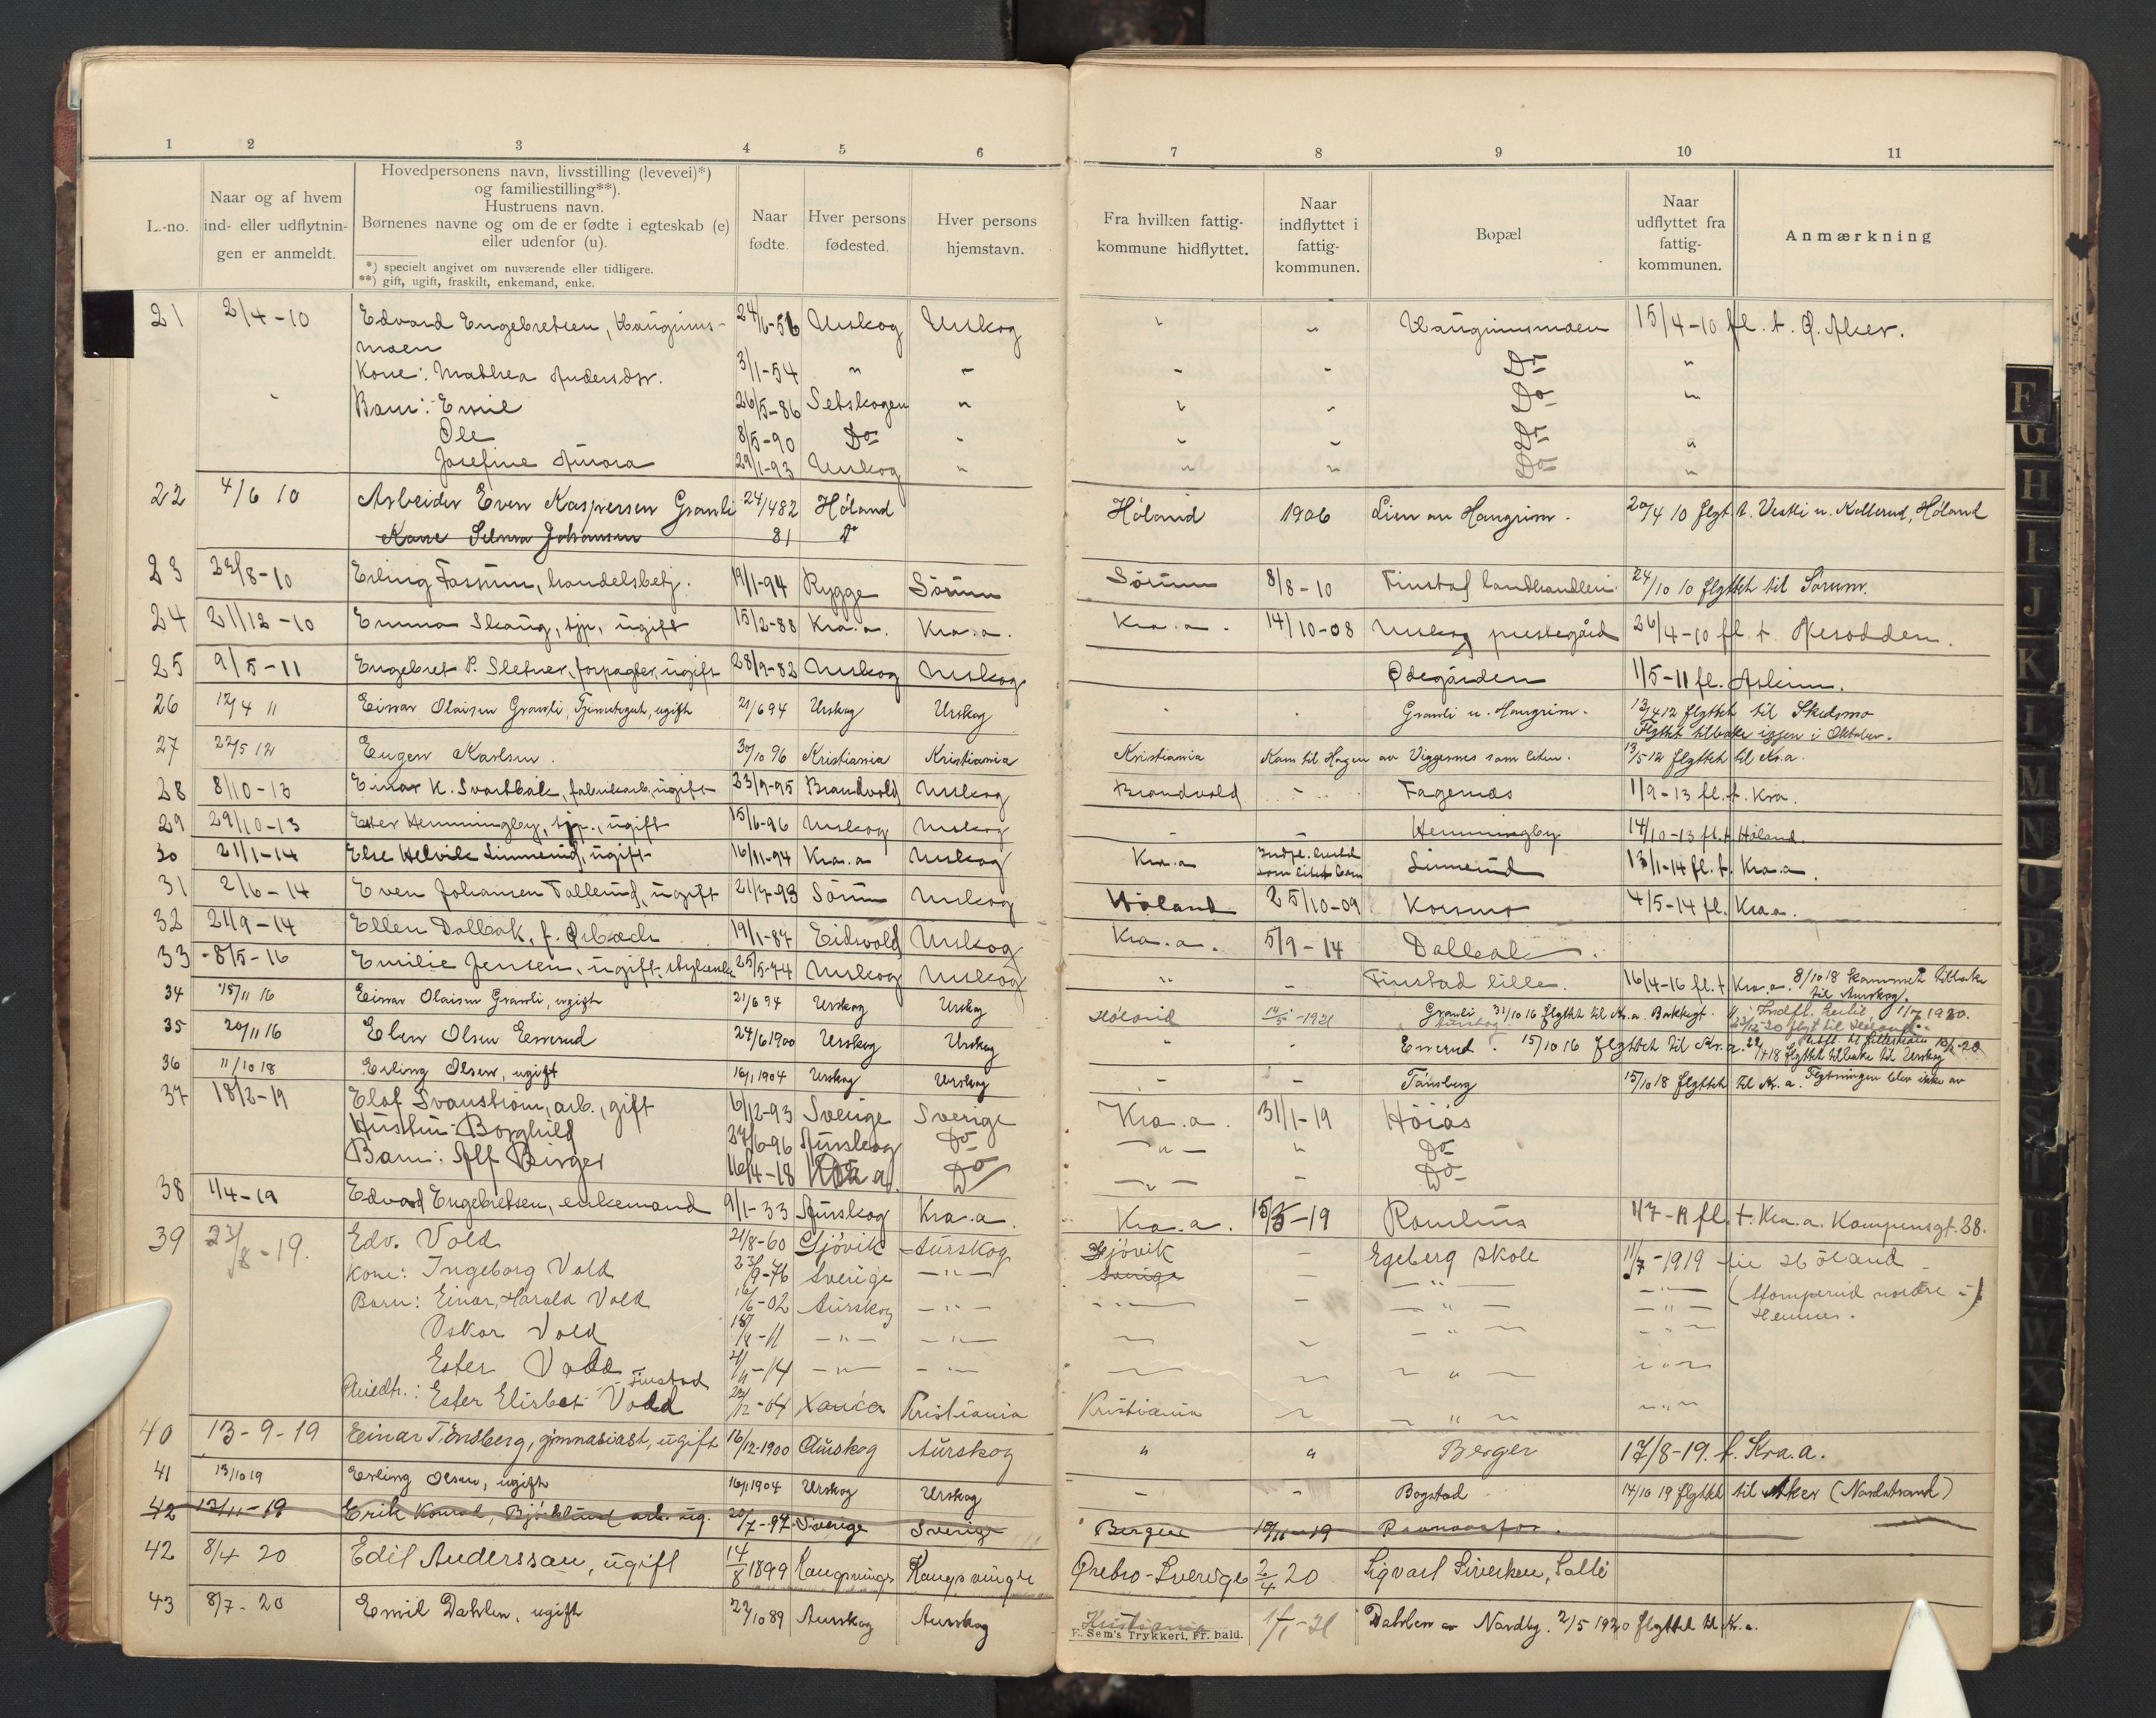 1 2 3 4 5 6 7 8 9 10 11
L.-no.
Naar og af hvem ind- eller udflytnin- gen er anmeldt.
Hovedpersonens navn, livsstilling (levevei)*)
og familiestilling**).
Hustruens navn.
Børnenes navne og om de er fødte i egteskab (e)
eller udenfor (u).
*) specielt angivet om nuværende eller tidligere.
**) gift, ugift, fraskilt, enkemand, enke.
Naar fødte.
Hver persons fødested.
Hver persons hjemstavn.
Fra hvilken fattig- kommune hidflyttet.
Naar indflyttet i fattig- kommunen.
Bopæl
Naar udflyttet fra fattig- kommunen.
Anmærkning
21 2/4-10 Edvard Engebretsen, Haugrims- 24/6-56 Urskog Urskog " " Haugrimsmoen 15/4-10 fl. t. Ø. Aker.
moen
Kone: Mathea Andersdtr. 3/1-54 " " " " Do "
Barn: Emil 26/5-86 Setskogen " " " Do "
Ole 8/5-90 Do " " " Do "
Josefine Aurora 29/1-93 Urskog " " " Do "
22 4/6 10 Arbeider Even Kaspersen Granli 24/4 82 Höland Höland 1906 Lien av Haugrim. 20/4 10 flyt. t. Veski u. Kollerud, Höland
Kone Selma Johansen 81 Do
23 23/8-10 Erling Fossum, handelsbetj. 19/1-94 Rygge Sörum Sörum 8/8-10 Finstad landhandleri 24/10 10 flyttet til Sörum.
24 21/12-10 Emma Skaug, tjp., ugift 15/2-88 Kra.a. Kra.a. Kra.a. 14/10-08 Urskog prestegård 26/4-10 fl. t. Nesodden.
25 9/5-11 Engebret P. Sletner, forpagter, ugift 28/9-82 Urskog Urskog Ødegården 1/5-11 fl. Askim.
26 12/4 11 Einar Olaisen Granli, Tjenestegut, ugift 21/6 94 Urskog Urskog Granli u. Haugrim. 13/4 12 flyttet til Skedsmo
Flyttet tilbake igjen i Oktober.
27 22/5 12 Eugen Karlsen. 30/10 96 Kristiania Kristiania Kristiania Kom til Hagen av Viggernes som liten. 13/5-12 flyttet til Kr.a.
28 8/10-13 Einar K. Svartbak, fabrikarb., ugift 23/9-95 Brandvold Urskog Brandvold " Fagernes 1/9-13 fl. t. Kra.
29 29/10-13 Ester Hemmingby, tjp., ugift 15/6-96 Urskog Urskog " " Hemmingby 14/10-13 fl. t. Höland.
30 21/1-14 Else Helvik Linnerud, ugift 16/11-94 Kra.a Urskog Kra.a Indfl. hertil som litet barn Linnerud 13/1-14 fl. t. Kra.a.
31 2/6-14 Even Johansen Tollerud, ugift 21/7-93 Sörum Urskog Höland 25/10-09 Korsmo 4/5-14 fl. Kra.a.
32 21/9-14 Ellen Dalbak, f. Ørbæch 19/1-87 Eidsvold Urskog Kra.a. 5/9-14 Dalbak.
33 8/5-16 Emilie Jensen, ugift, 25/5-74 Urskog Urskog " " Finstad lille. 16/4-16 fl. t. Kra.a. 8/10 18 kommet tilbake
til Aurskog.
34 15/11 16 Einar Olaisen Granli, ugift 21/6 94 Urskog Urskog Höland 14/5-1921 Granli 31/10 16 flyttet til Kr.a. Indfl. hertil 11/7 1920.
22/12-20 flyt til Höland.
35 20/11 16 Elen Olsen Eserud 24/6 1900 Urskog Urskog " " Eserud. 15/10 16 flyttet til Kr.a. 22/4 18 flyttet tilbake til Urskog
36 11/10 18 Erling Olsen, ugift 16/1 1904 Urskog Urskog " " Tönsberg 15/10 18 flyttet til Kr.a. Flytningen blev ikke av
37 18/2-19 Elof Svanström, arb., gift 6/12-93 Sverige Sverige Kra.a. 31/1-19 Höiås
Hustru Borghild 27/6-96 Aurskog Do " " Do
Barn: Alf Birger 16/4-18 Kra.a. Do " " Do
38 1/4-19 Edvard Engebretsen, enkemand 9/1-33 Aurskog Kra.a. Kra.a. 15/3-19 Romlius 1/7-19 fl. t. Kra.a. Kampensgt. 38.
39 23/8-19. Edv. Vold 21/8-60 Gjövik Aurskog Gjövik " Egeberg skole 11/7-1919 til Höland
Kone: Ingeborg Vold 23/9-76 Sverige " Sverige " " " (Stomperud nordre -)
Barn: Einar, Harald Vold 16/6-02 Aurskog " " " " " Hemnes.
Oskar Vold 18/8-11 " " " " " "
Ester Vold 21/11-14 " " " " " "
Pleiedtr.: Ester Elisbet Vold Finstad 22/12-04 Kristiania Kristiania " " "
40 13-9-19 Einar Tensberg, gimnasiast, ugift 16/12-1900 Aurskog Aurskog " " Berger 17/8-19. t. Kra.a.
41 13/10 19 Erling Olsen, ugift 16/1 1904 Urskog Urskog " " Bogstad 14/10 19 flyttet til Aker (Nordstrand)
42 12/11-19 Erik Konrad, Björklund arb. ug. 20/7-97 Sverige Sverige Bergen 10/11-19
42 8/4 20 Edit Andersson, ugift 14/8 1899 Kongsvinger Kongsvinger Ørebro-Sverige 2/4 20 Sigvart Sivertsen,
43 8/7-20 Emil Dahlen, ugift 27/10 89 Aurskog Aurskog Kristiania 1/1-21 Dahlen av Nordby. 2/5 1920 flyttet til Kr.a.
E. Sem's Trykkeri, Fr. hald.
F
G
H
I
J
K
L
M
N
O
P
Q
R
S
T
U
V
W
X